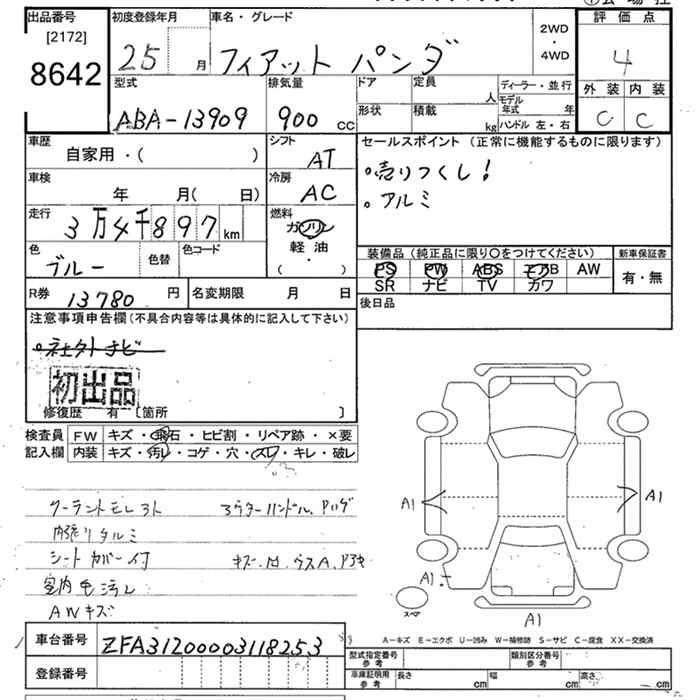 出品番号
[2172]
8642
初度登録年月
25 月
車名・グレード
フィアット パンダ
2WD
・
4WD
評価点
4
外装 内装
C C
型式
ABA-13909
排気量
900 CC
ドア
形状
定員
人
積載
kg
ディーラー・並行
モデル年式 年
ハンドル 左・右
車歴
自家用・( )
シフト
AT
車検
年 月( 日)
冷房
AC
走行
3万4千897 km
燃料
ガソリン
・
軽油
( )
色
ブルー
色替
色コード
R券 13780 円
名変期限 月 日
セールスポイント (正常に機能するものに限ります)
・売りつくし!
・アルミ
装備品 (純正品に限り○をつけてください)
PS PW ABS エアB AW
SR ナビ TV カワ
新車保証書
有・無
後日品
注意事項申告欄(不具合内容等は具体的に記入して下さい)
初出品
修復歴 有 [箇所 ]
検査員記入欄
FW キズ・飛石・ヒビ割・リペア跡・×要
内装 キズ・汚レ・コゲ・穴・スレ・キレ・破レ
クーラントモレ
内張りタルミ
シートカバー付
室内毛汚レ
AWキズ
A1
A1
A1
スペア
A1
車台番号 ZFA31200003118253
登録番号
A-キズ E-エクボ U-凹み W-補修跡 S-サビ C-腐食 XX-交換済
型式指定番号
参考
類別区分番号
参考
車庫証明用
参考
長さ cm 幅 cm 高さ cm